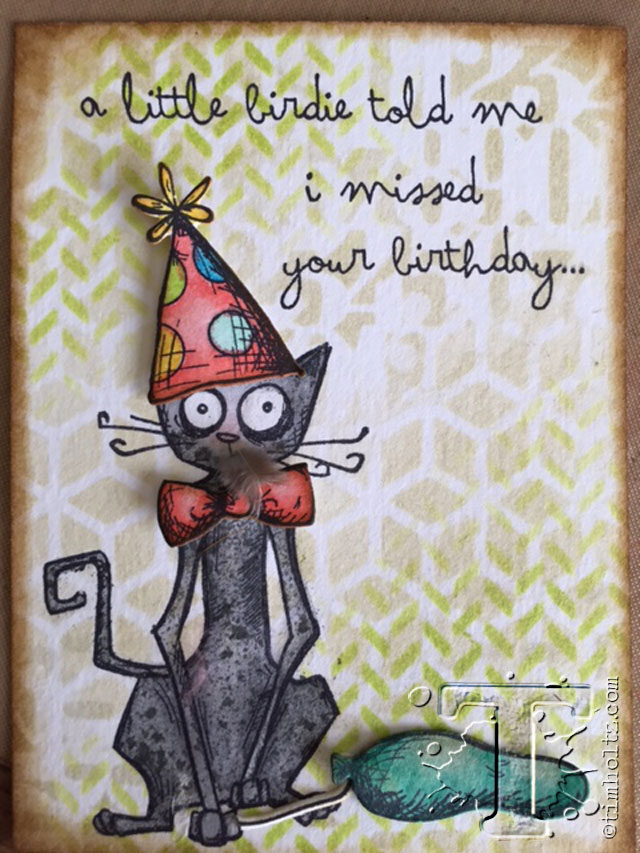 a little birdie told me
i missed
your birthday...
T
©timholtz.com